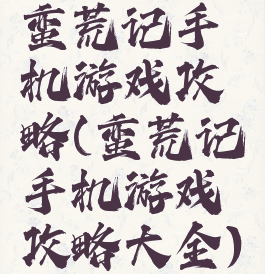 蛮荒记手
机游戏攻
略(蛮荒记
手机游戏
攻略大全)